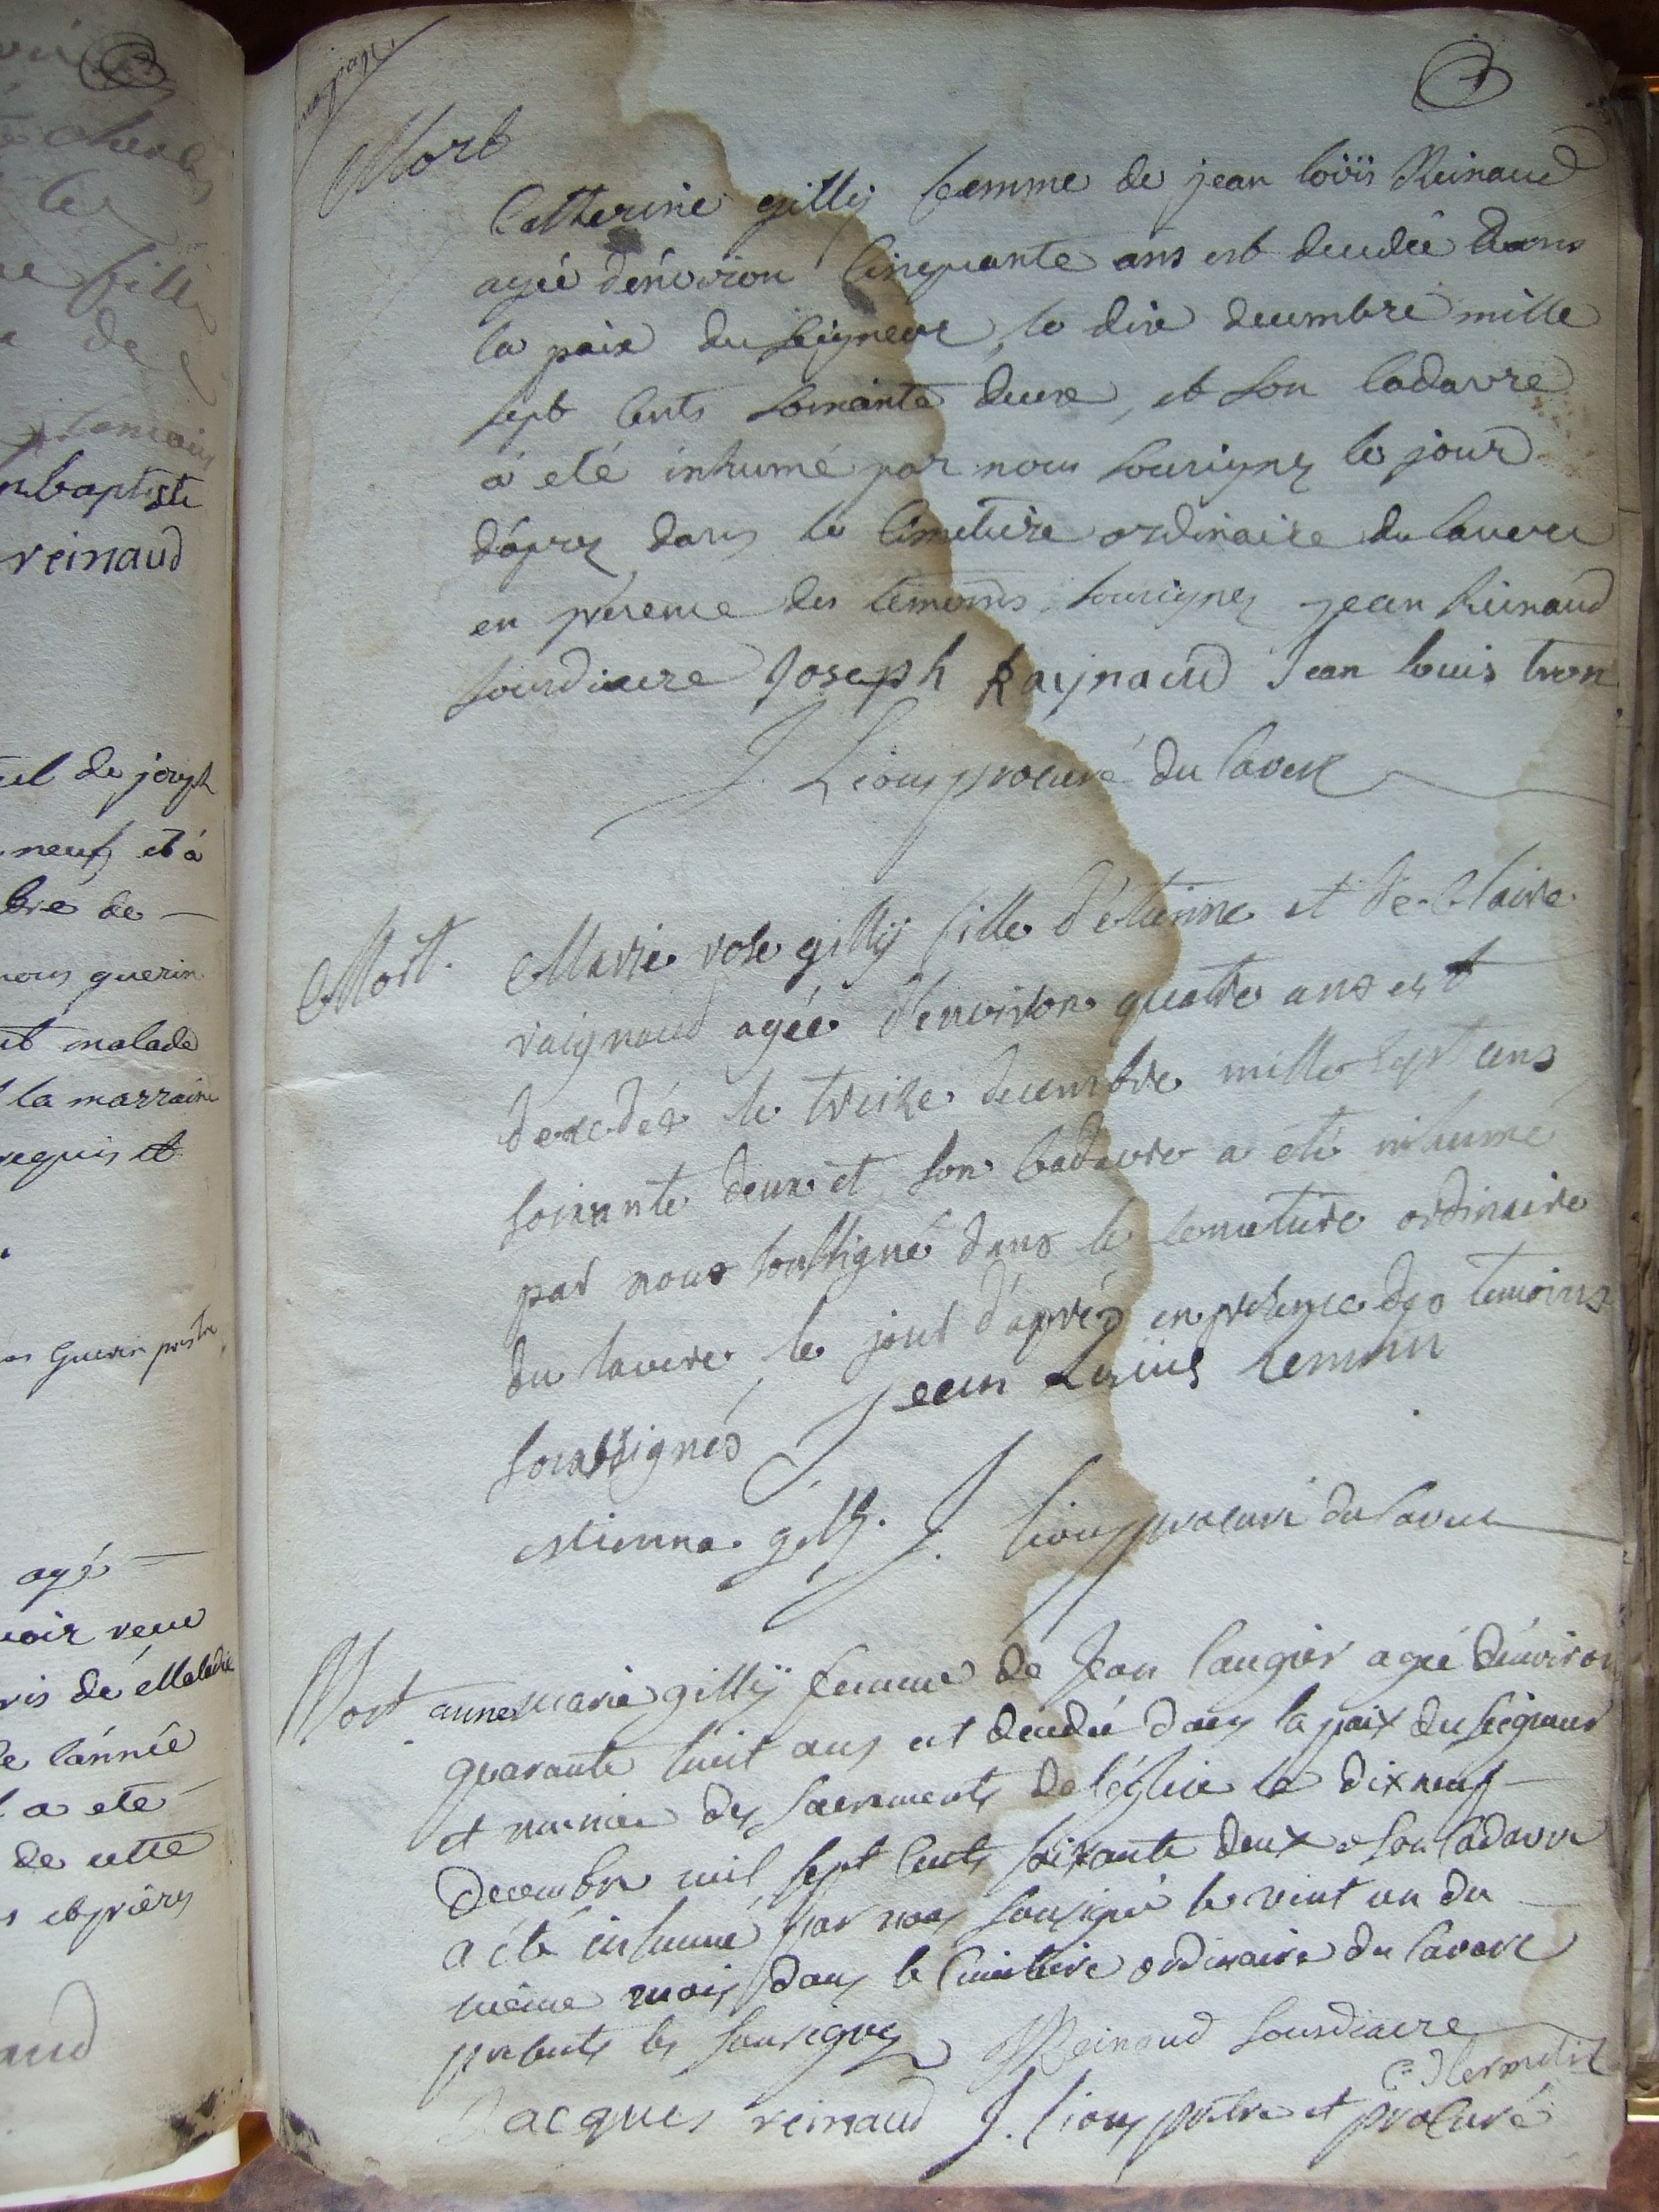 Mort
Catherine gilly femme de jean loüis Reinaud
agée d'énviron Cinquante ans est decedée dans
la paix du seigneur, le dix decembre mille
sept Cents soixante deux, et son Cadavre
à eté inhumé par nous sousigné le jour
d'áprez dans le Cimetiere ordinaire du laverc
en présence des témoins sousignez jean Reinaud
sousdiacre Joseph Raynaud Jean louis tron
J. Lions procuré du laverc
Mort. Marie rose gilly fille d'étienne et de Claire
raignaud agée d'environ quatre ans est
decedée le treize decembre mille sept cens
soixante deux et son Cadavre a eté inhumé
par nous soussigné dans le cemetiere ordinaire
du laverc le jour d'aprés en presence des temoins
soussignés Jean Louis
estienne gilly. J. lions procuré du laverc
Mort anne marie gillÿ femme de Jean laugier agée d'énviron
quarante huit ans est decedée dans la paix du seigneur
et munie des sacrements de l'église le dix neuf
Decembre mil sept Cents soixante deux e son Cadavre
a été inhumé par nous sousigné le vint un du
même mois dans le Cimitiere ordinaire du laverc
presents les sousignez Reinaud sousdiacre
Jacques reinaud J. lions prêtre et procuré
enbaptiste
reinaud
de joseph
neuf, et à
bre de
nous guerin
malade
la marraine
requis et
Guerin prestre
agé
veue
de l'année
a eté
de cette
fille
de